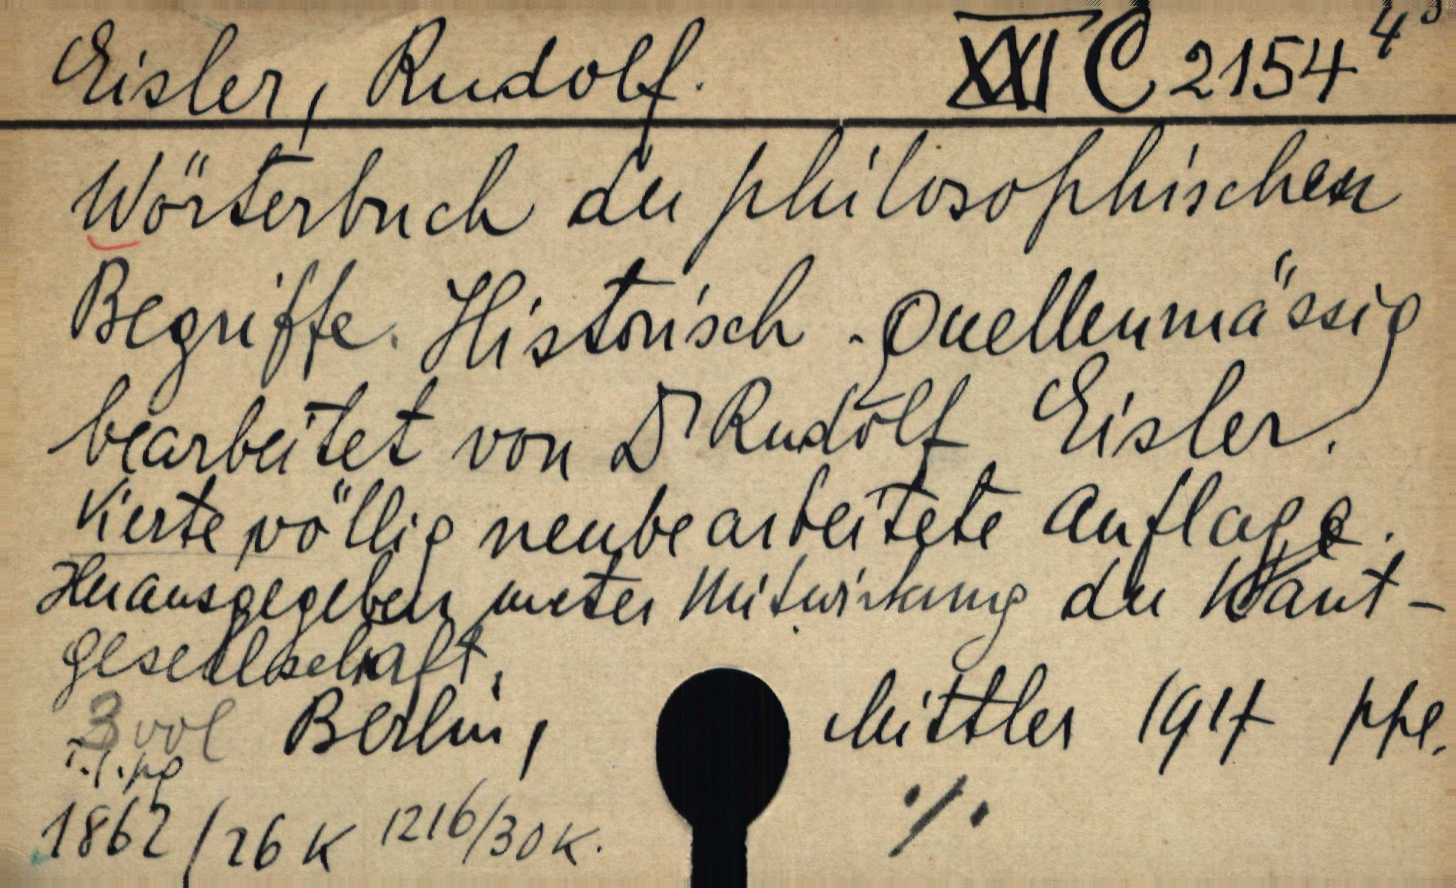 Eisler, Rudolf. XXI C 2154 4°
Wörterbuch der philosophischen
Begriffe. Historisch - Quellenmässig
bearbeitet von Dr Rudolf Eisler.
Vierte völlig neubearbeitete Auflage.
Herausgegeben unter Mitwirkung der Kant-
gesellschaft.
3 vol Berlin, Mittler 1917 ppe.
T.1.pg
1862/26 K 1216/30 K. ·/·